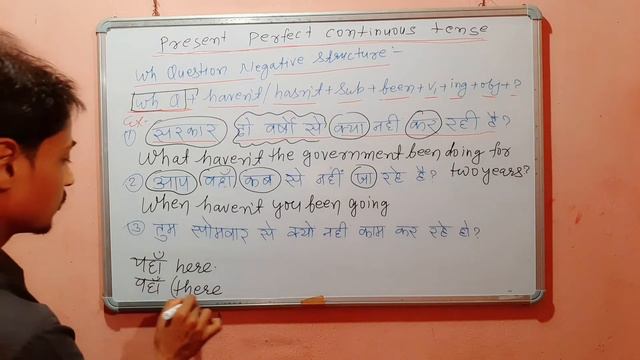 Present Perfect continuous tense
Wh Question Negative Structure:-
Wh Q + haven't/hasn't + sub + been + v₁ + ing + obj + ?
Ex-
(1) सरकार दो वर्षो से क्या नही कर रही है?
What haven't the government been doing for two years?
(2) आप वहाँ कब से नहीं जा रहे है?
When haven't you been going
(3) तुम सोमवार से क्यो नही काम कर रहे हो?
यहाँ here.
वहाँ (there